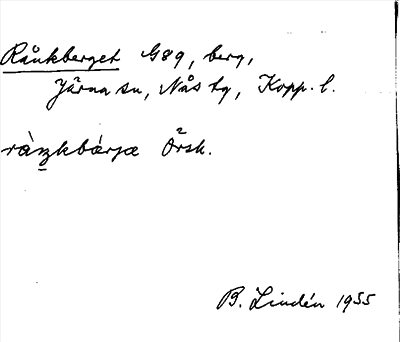 Rånkberget G89, berg,
Järna sn, Nås tg, Kopp. l.
rànkbærjæ Örsk.
B. Lindén 1955